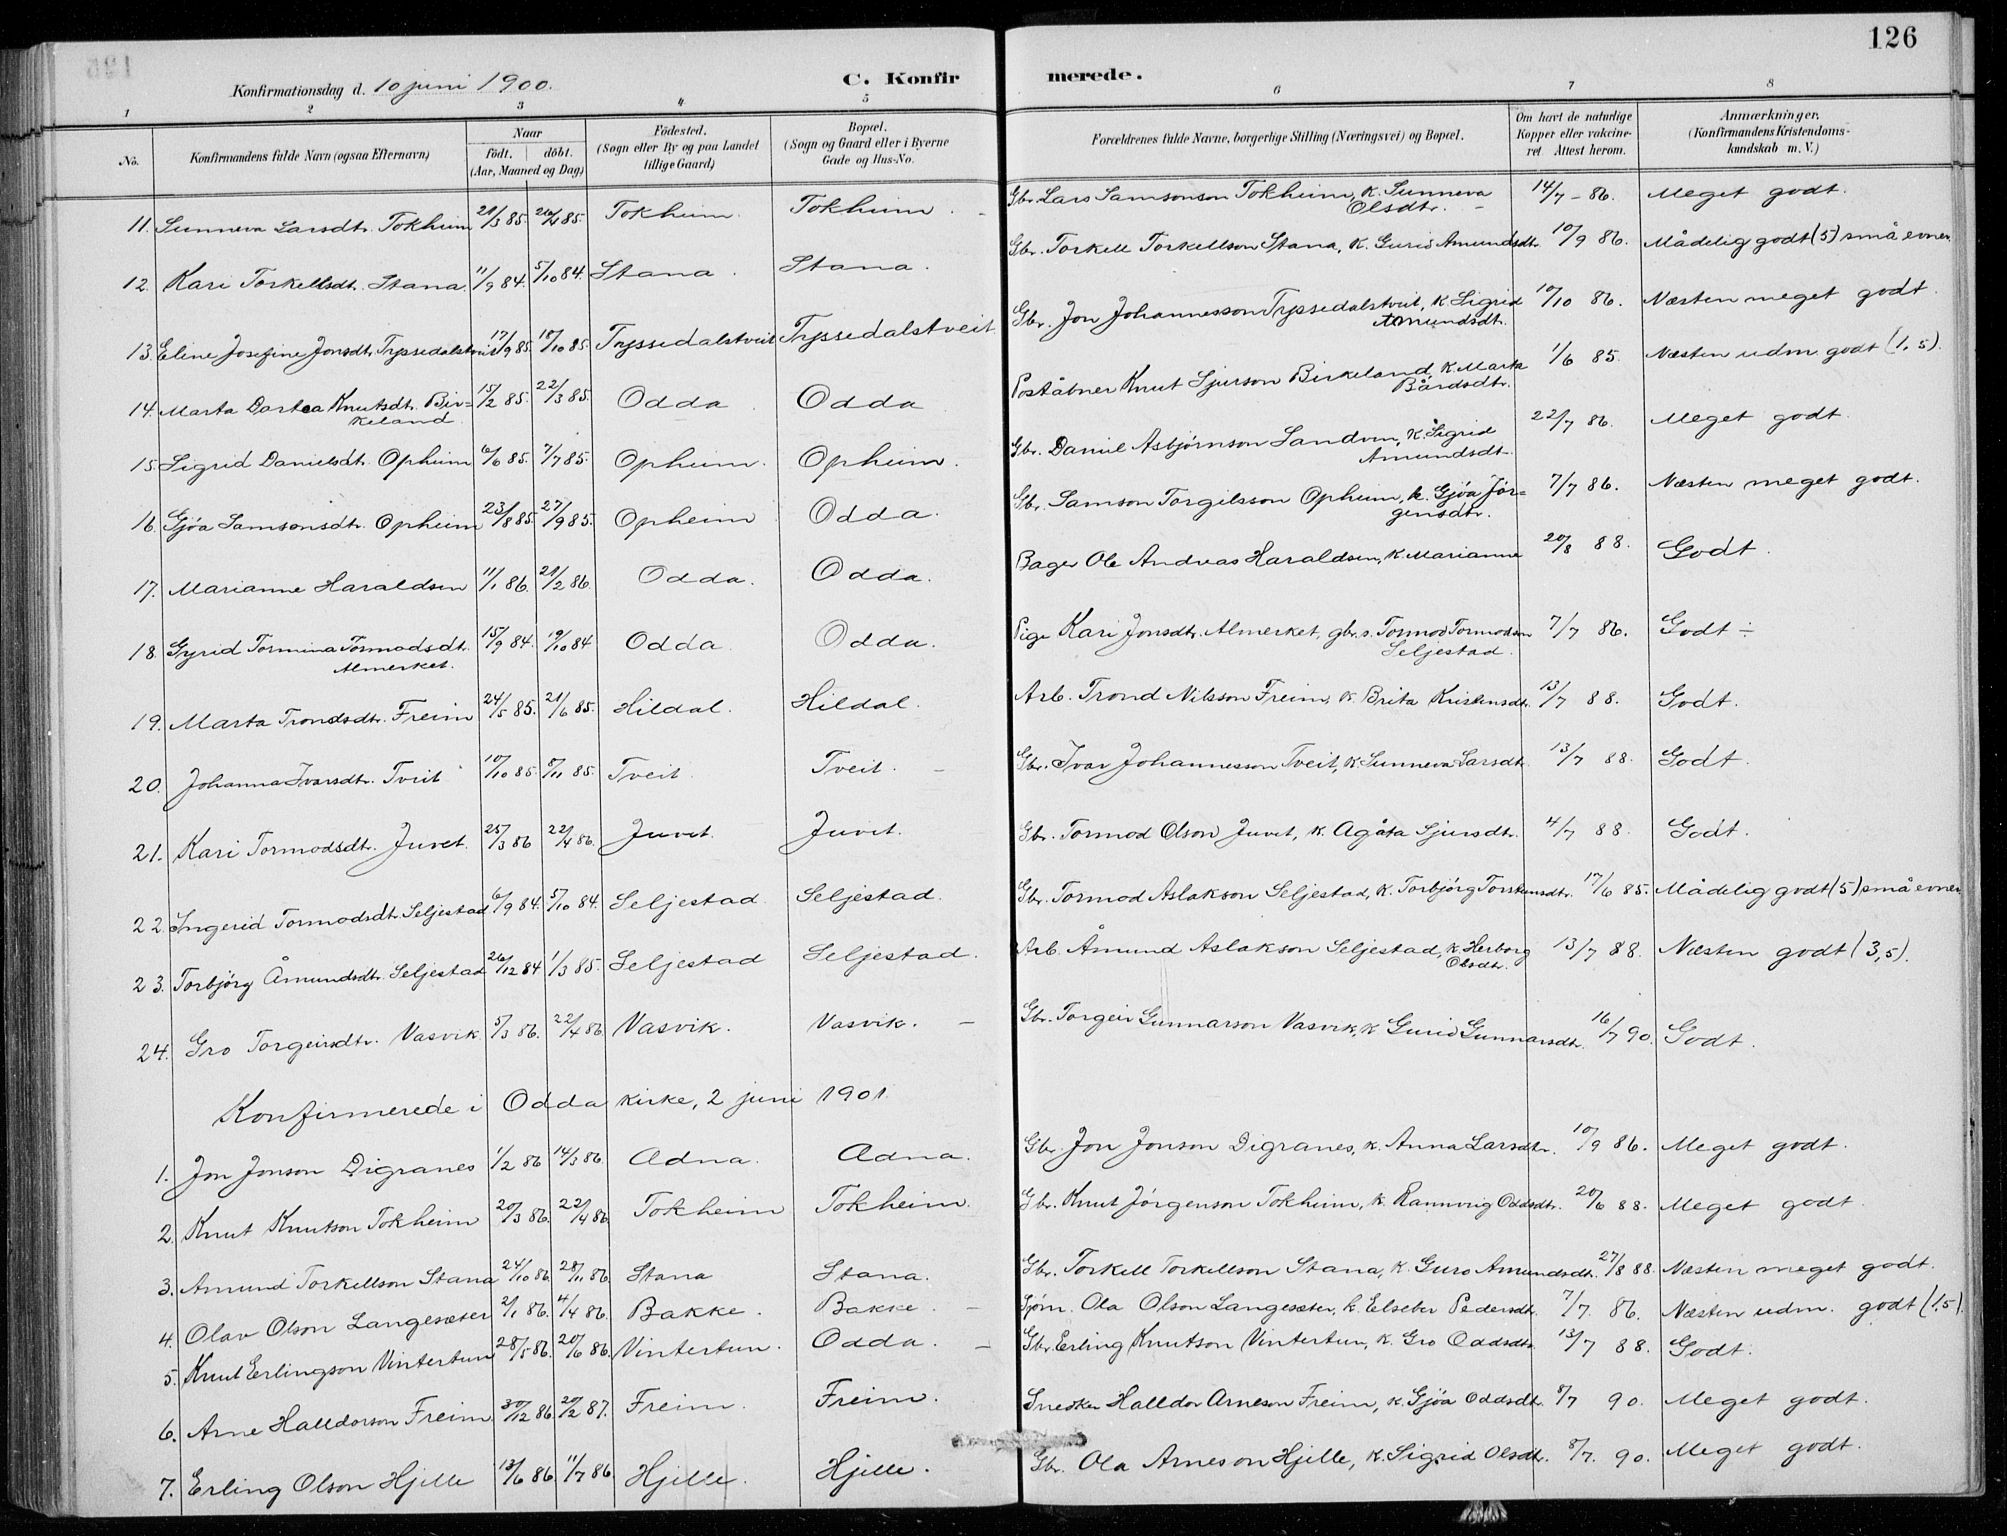 126
Konfirmationsdag d. 10 juni 1900. C. Konfirmerede.
1 2 3 4 5 6 7 8
No. Konfirmandens fulde Navn (ogsaa Efternavn) Naar födt. döbt. (Aar, Maaned og Dag) Födested. (Sogn eller By og paa Landet tillige Gaard) Bopæl. (Sogn og Gaard eller i Byerne Gade og Hus-No. Forældrenes fulde Navne, borgerlige Stilling (Næringsvei) og Bopæl. Om havt de naturlige Kopper eller vakcineret Attest herom. Anmærkninger, (Konfirmandens Kristendomskundskab m. V.)
11. Sunneva Larsdtr. Tokheim 21/3 85. 26/4 85. Tokheim. Tokheim. Gbr. Lars Samsonson Tokheim, k. Sunneva Olsdtr. 14/7 - 86. Meget godt.
12. Kari Torkellsdt. Stana 11/9 84. 5/10 84. Stana. Stana. Gbr. Torkell Torkellson Stana, k. Gurid Amundsdt. 10/9 86. Mådelig godt (5) små evner.
13. Eline Josefine Jonsdt. Tryssedalstveit 17/9 85. 18/10 85. Tryssedalstveit Tryssedalstveit Gbr. Jon Johannesson Tryssedalstveit, k. Sigrid Amundsdt. 10/10 86. Næsten meget godt.
14. Marta Dortea Knutsdt. Birkeland. 15/2 85. 22/3 85. Odda Odda Poståbner Knut Sjurson Birkeland, k. Marta Bårdsdtr. 1/6 85. Næsten udm. godt (1,5).
15. Sigrid Danielsdt. Opheim 6/6 85. 7/7 85. Opheim. Opheim. Gbr. Daniel Asbjörnson Sandven, k. Sigrid Amundsdt. 22/7 86. Meget godt.
16. Gjöa Samsonsdtr. Opheim 23/8 85. 27/9 85. Opheim Odda. Gbr. Samson Torgilsson Opheim, k. Gjöa Jörgensdtr. 7/7 86. Næsten meget godt.
17. Marianne Haraldsen 11/1 86. 21/2 86. Odda. Odda. Bager Ole Andreas Haraldsen, k. Marianne 20/8 88. Godt.
18. Gyrid Tormina Tormodsdt. Almerket. 15/9 84. 19/10 84 Odda. Odda. Pige Kari Jonsdtr. Almerket, gbr.s. Tormod Tormodson Seljestad. 7/7 86. Godt ÷
19. Marta Trondsdtr. Freim 24/5 85. 21/6 85. Hildal. Hildal. Arb. Trond Nilsson Freim, k. Brita Kristensdt. 13/7 88. Godt.
20. Johanna Ivarsdtr. Tveit 10/10 85. 8/11 85. Tveit Tveit. Gbr. Ivar Johannesson Tveit, k. Sunneva Larsdt. 13/7 88. Godt.
21. Kari Tormodsdt. Juvet. 25/3 86 22/4 86. Juvet. Juvet. Gbr. Tormod Olson Juvet, k. Agåta Sjursdt. 4/7 88. Godt.
22. Ingerid Tormodsdt. Seljestad 6/9 84. 5/10 84. Seljestad Seljestad. Gbr. Tormod Aslakson Seljestad, k. Torbjörg Torstensdtr. 17/6 85. Mådelig godt (5) små evner
23. Torbjörg Åmundsdtr. Seljestad 26/12 84 1/3 85. Seljestad Seljestad. Arb. Åmund Aslakson Seljestad, k. Herborg Olsdt. 13/7 88. Næsten godt (3,5).
24. Gro Torgeirsdtr. Vasvik 5/3 86. 22/4 86 Vasvik. Vasvik. Gbr. Torgeir Gunnarson Vasvik, k. Gurid Gunnarsdt. 16/7 90. Godt.
Konfirmerede i Odda kirke, 2 juni 1901.
1. Jon Jonson Digranes 1/2 86 14/3 86. Adna. Adna. Gbr. Jon Jonson Digranes, k. Anna Larsdtr. 10/9 86. Meget godt.
2. Knut Knutson Tokheim 20/3 86. 22/4 86. Tokheim Tokheim. Gbr. Knut Jörgenson Tokheim, k. Rannveig Oddsdtr. 20/6 88. Meget godt.
3. Amund Torkellson Stana 24/10 86. 28/11 86. Stana Stana. Gbr. Torkell Torkellson Stana, k. Guro Amundsdt. 27/8 88. Næsten meget godt.
4. Olav Olson Langesæter 2/1 86. 4/4 86. Bakke. Bakke. Sjöm. Ola Olson Langesæter, k. Elseber Pedersdt. 7/7. 86. Næsten udm. godt (1,5).
5. Knut Erlingson Vintertun 28/5 86. 20/6 86. Vintertun. Odda. Gbr. Erling Knutson Vintertun, k. Gro Oddsdtr. 13/7 88. Godt.
6. Arne Halldorson Freim 30/12 86. 20/2 87. Freim. Freim. Snedker Halldor Arneson Freim, k. Gjöa Oddsdt. 8/7 90. Meget godt.
7. Erling Olson Hjelle 13/6 86. 11/7 86 Hjelle. Hjelle. Gbr. Ola Arneson Hjelle, k. Sigrid Olsdt. 8/7. 90. Meget godt.